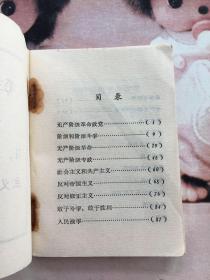 目录
无产阶级革命政党 (1)
阶级和阶级斗争 (9)
无产阶级革命 (29)
无产阶级专政 (45)
社会主义和共产主义 (60)
反对帝国主义 (65)
反对修正主义 (76)
敢于斗争、敢于胜利 (84)
人民战争 (87)